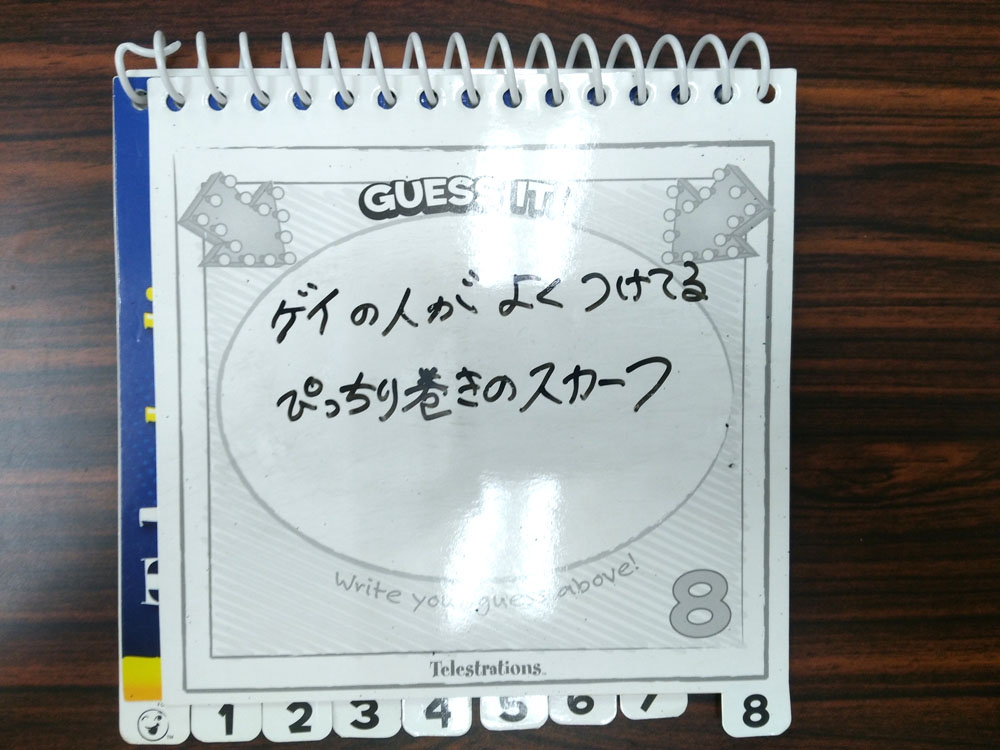 GUESS IT!
ゲイの人がよくつけてる
ぴっちり巻きのスカーフ
Write your guess above!
8
Telestrations
1 2 3 4 5 6 7 8